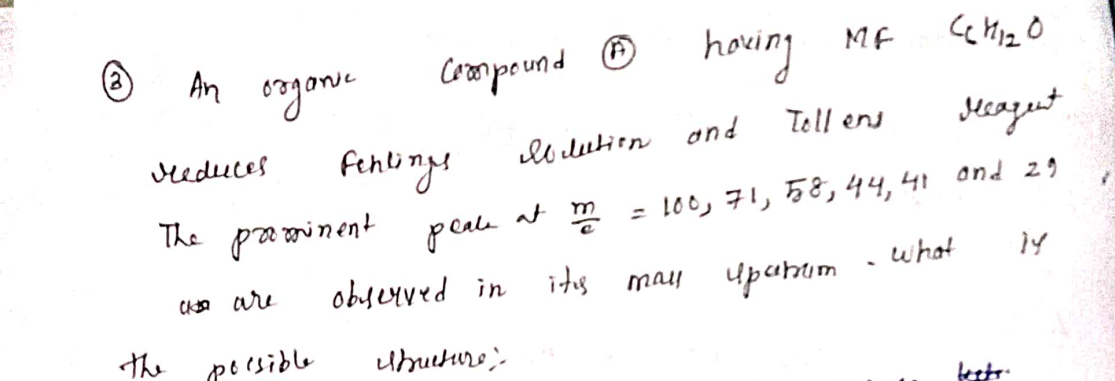 ③ An organic Compound Ⓐ having MF C6H12O
reduces Fehlings solution and Tollens reagent
The prominent peak at m/e = 100, 71, 58, 44, 41 and 29
are observed in its mass spectrum. what is
the possible structure:-